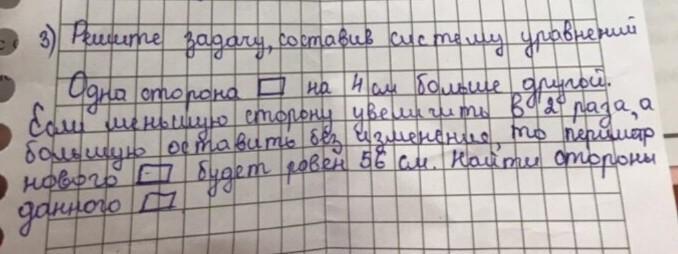 3) Решите задачу, составив систему уравнений
Одна сторона ▭ на 4 см больше другой.
Если меньшую сторону увеличить в 2 раза, а
большую оставить без изменения, то периметр
нового ▭ будет равен 56 см. Найти стороны
данного ▭